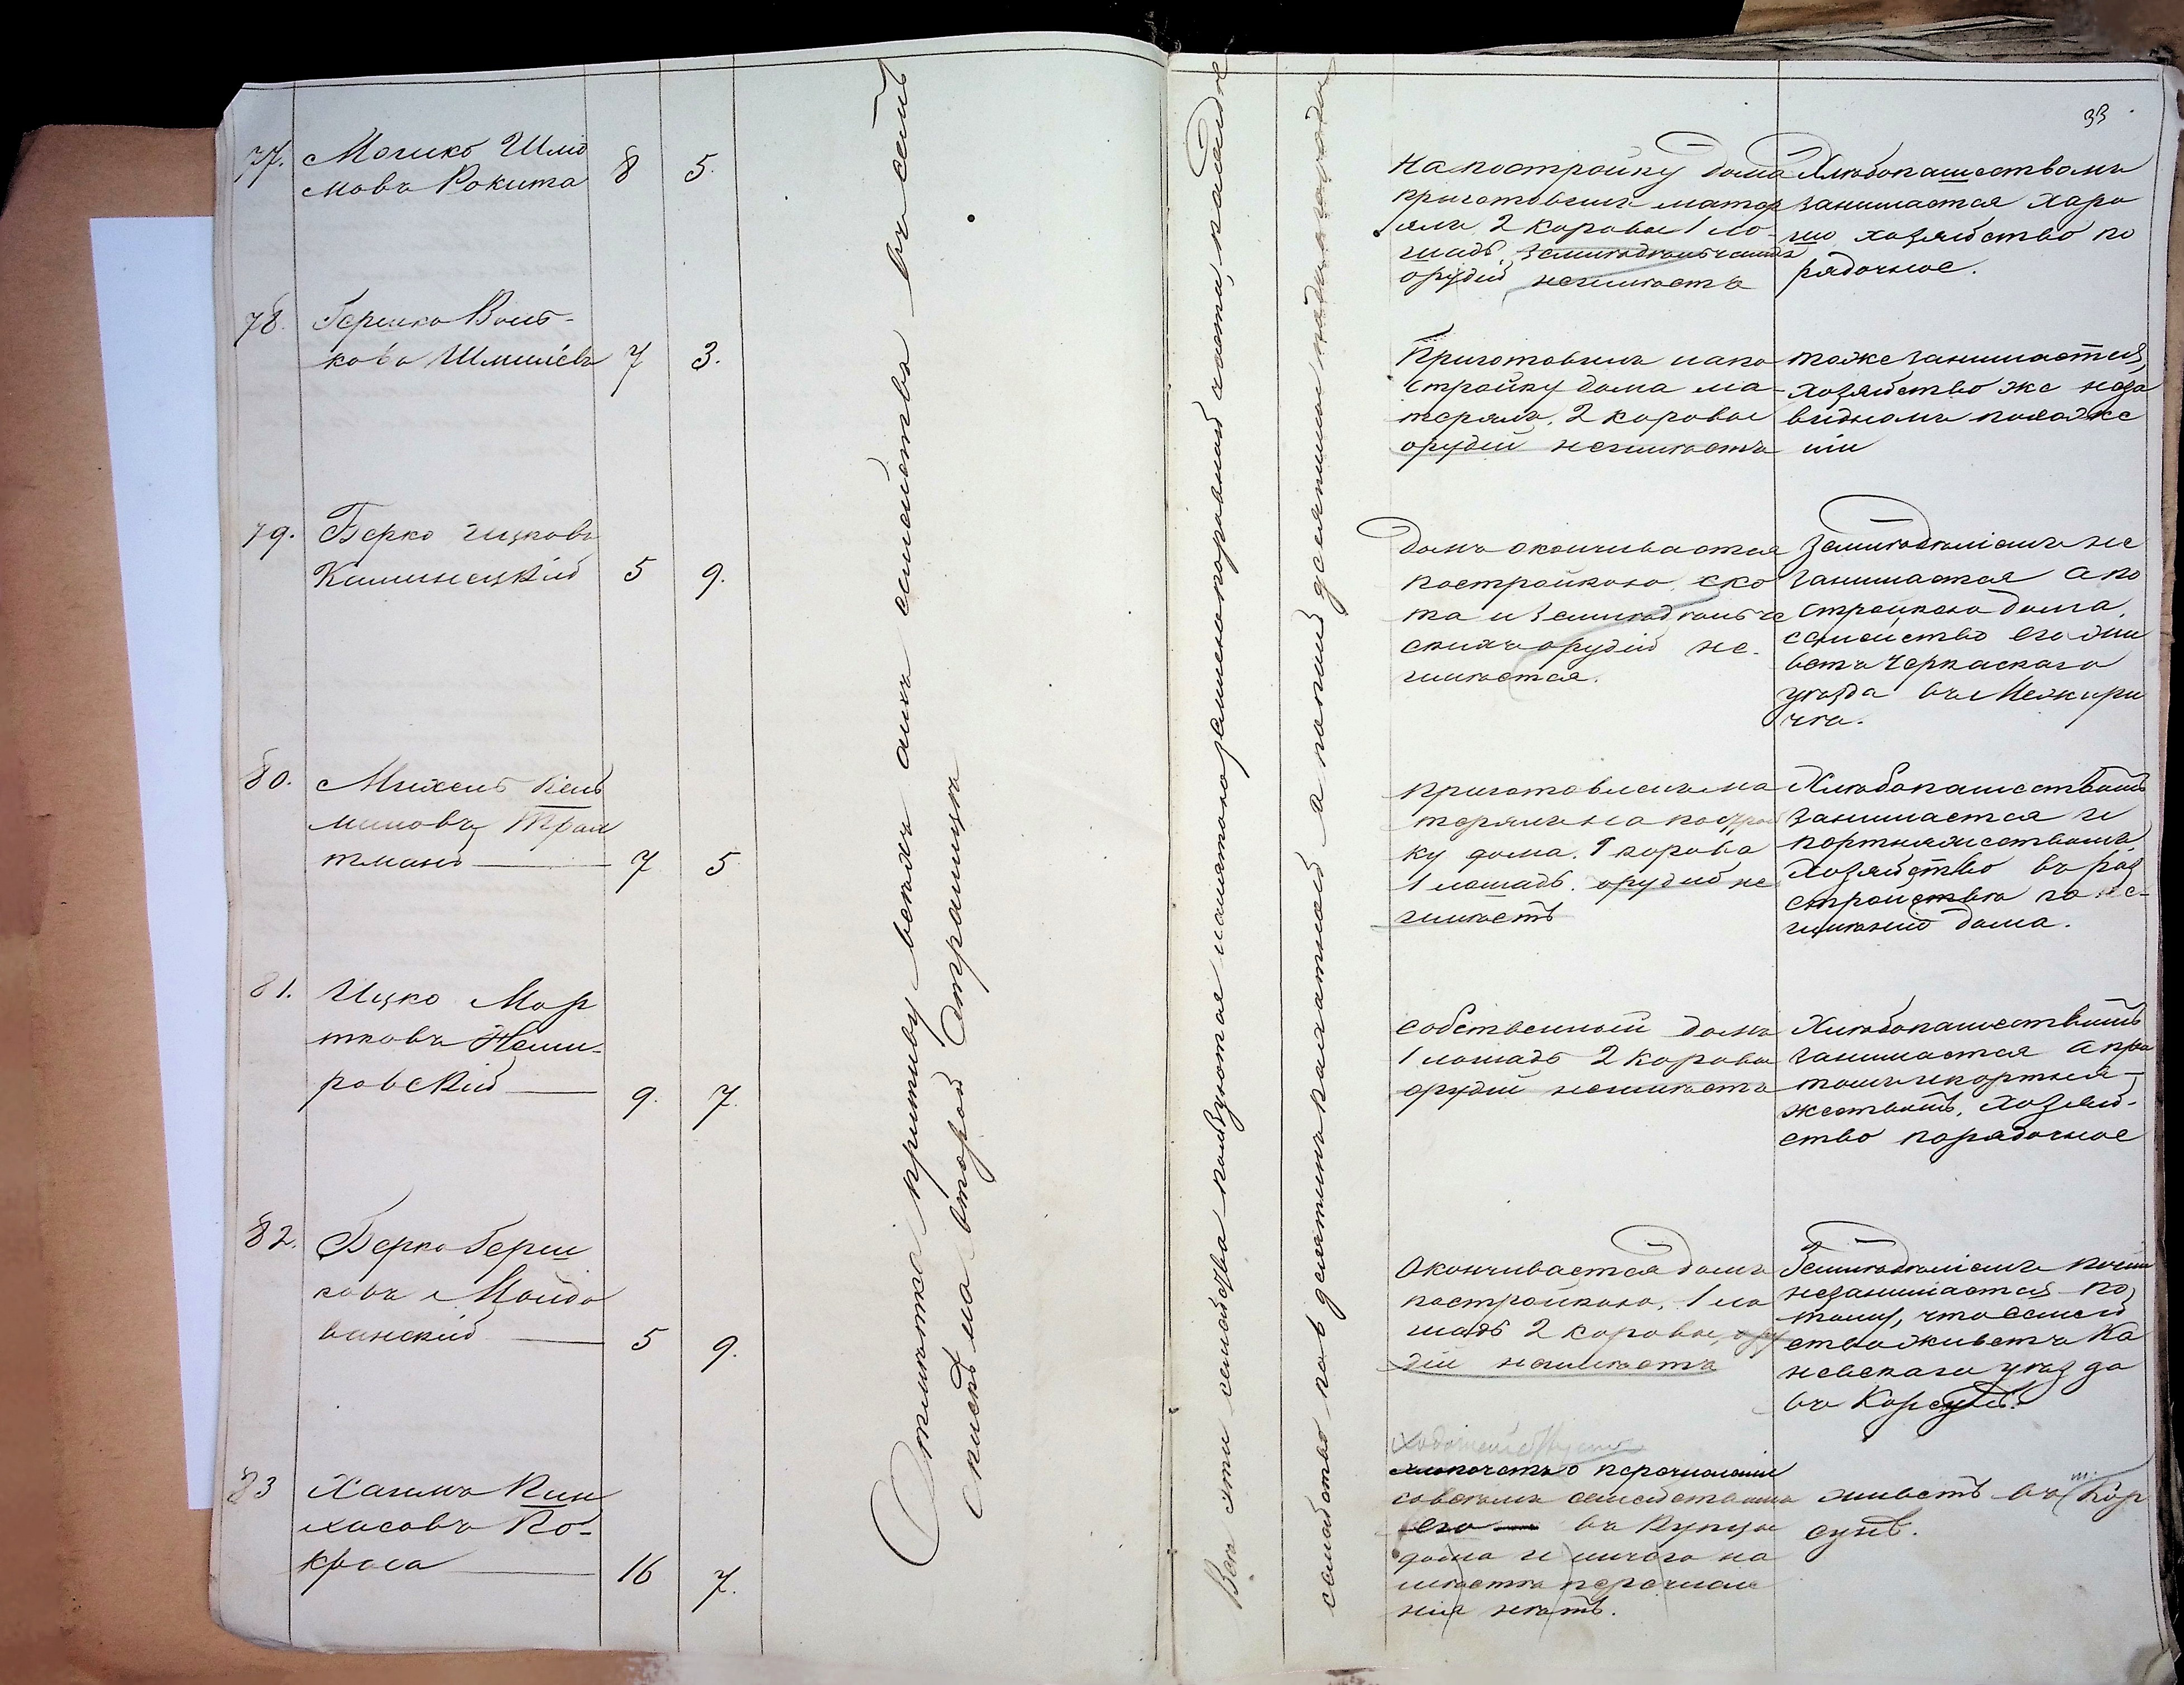 33
77. Мошко Шлио
мовъ Рокита 8 5.
На постройку дома
приготовленъ матер
ялъ 2 коровы 1 ло-
шадь. Земледѣльческихъ
орудій неимѣетъ
Хлѣбопашествомъ
занимается хоро
шо хозяйство по
рядочное.
78. Гершко Воль-
ковъ Шмилевъ 7 3.
Приготовилъ напо
стройку дома ма-
терялъ, 2 коровы
орудій неимѣетъ
тоже занимается,
хозяйство же неза
видномъ положе
ніи
79. Берко Ицковъ
Кишинецкій 5 9.
Домъ оканчивается
постройкою, ско
та и Земледѣльче
скихъ орудій не-
имѣется.
Земледѣліемъ не
занимается а по
стройкою дома,
семейство его жи
ветъ Черкаскаго
уѣзда въ Межири
чѣ.
80. Михель Кель
мановъ Трах
тманъ 7 5.
приготовленъ ма
терялъ на построй
ку дома. 1 корова
1 лошадь. орудій не
имѣетъ
Хлѣбопашествомъ
занимается и
портняжествомъ.
Хозяйство въ раз
стройствѣ по не-
имѣнію дома.
81. Ицко Мор
тковъ Неми-
ровскій 9. 7.
собственный домъ
1 лошадь 2 коровы
орудій неимѣетъ
Хлѣбопашествомъ
занимается а при
томъ и портня-
жествомъ, хозяй-
ство порядочное
82. Берко Герш
ковъ Молдо
ванскій 5 9.
Оканчивается домъ
постройкою, 1 ло
шадь 2 коровы, ору
дій неимѣетъ
Земледѣліемъ почти
незанимается по
тому, что семей
ство живетъ Ка
невскаго уѣзда
въ Корсунѣ.
83 Хаимъ Пин
хасовъ По-
краса 16 7.
хлопочетъ о перечисленіи
совсѣмъ семействомъ
его въ Купцы
дома и ничего не
имѣетъ перечисле
нія нѣтъ.
живетъ въ м: Кор
сунѣ.
Отмѣтка противу всѣхъ сихъ семействъ въ семъ
спискѣ на второй страницѣ
Всѣ эти семейства пользуются
семейство по 5 десятинъ а десятины